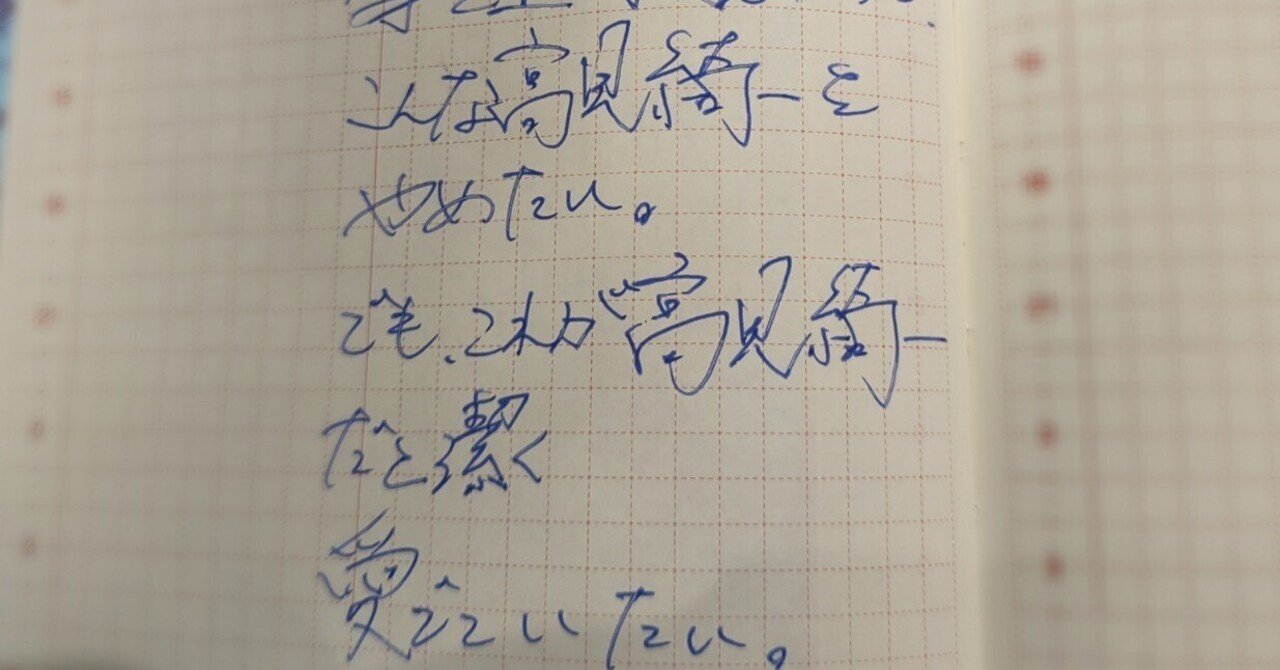 こんな高見綺一を
やめたい。
でも、これが高見綺一
だと潔く
愛でていたい。